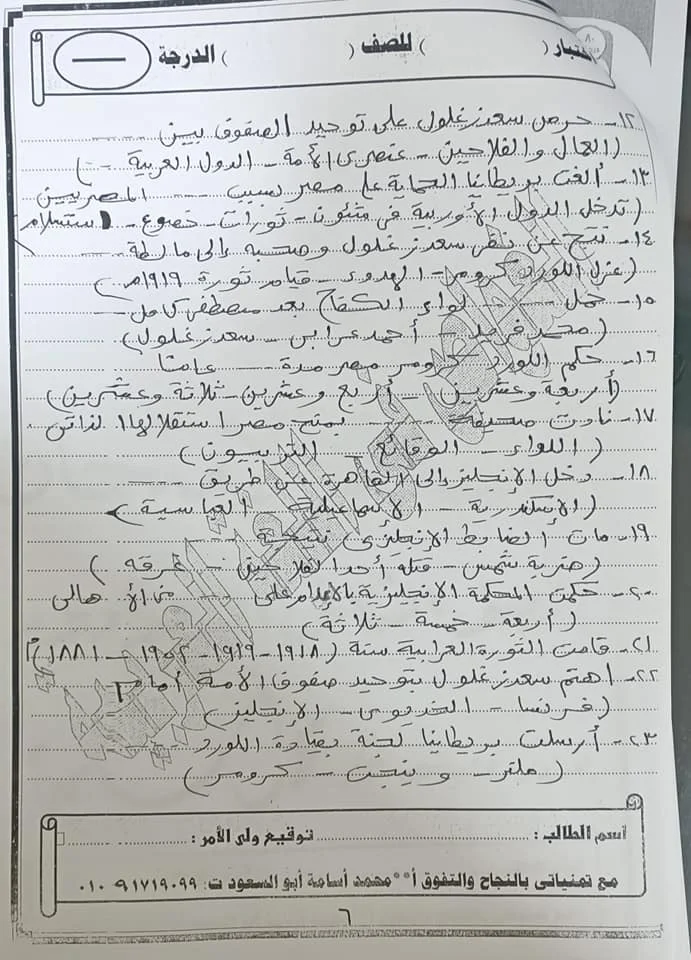 ختبار (            ) للصف (            ) الدرجة
٨٠
١٢- حرص سعد زغلول على توحيد الصفوف بين ........
(العمال والفلاحين - عنصرى الأمة - الدول العربية)
١٣- ألغت بريطانيا الحماية على مصر بسبب ...... المصريين
(تدخل الدول الأوربية فى شئون - ثورات - خضوع - استسلام
١٤- نتج عن نفى سعد زغلول وصحبه إلى مالطة ........
(عزل اللورد كرومر - الهدوء - قيام ثورة ١٩١٩م)
١٥- حمل ........ لواء الكفاح بعد مصطفى كامل
(محمد فريد - أحمد عرابى - سعد زغلول)
١٦- حكم اللورد كرومر مصر مدة ........ عامًا
(أربعة وعشرين - أربع وعشرين - ثلاثة وعشرين)
١٧- نادت صحيفة ........ بمنح مصر استقلالها الذاتى
(اللواء - الوقائع - التريبيون)
١٨- دخل الإنجليز إلى القاهرة عن طريق ........
(الإسكندرية - الإسماعيلية - العباسية)
١٩- مات الضابط الإنجليزى نتيجة ........
(ضربة شمس - قتله أحد الفلاحين - غرقه)
٢٠- حكمت المحكمة الإنجليزية بالإعدام على ...... من الأهالى
(أربعة - خمسة - ثلاثة)
٢١- قامت الثورة العرابية سنة (١٩١٨ - ١٩١٩ - ١٩٥٢ - ١٨٨١)م
٢٢- اهتم سعد زغلول بتوحيد صفوف الأمة أمام
(فرنسا - الخديوى - الإنجليز)
٢٣- أرسلت بريطانيا لجنة بقيادة اللورد ........
(ملنر - وينجت - كرومر)
اسم الطالب : ........ توقيع ولى الأمر : ........
مع تمنياتى بالنجاح والتفوق أ** محمد أسامة أبو السعود ت: ٠١٠٩١٧١٩٠٩٩
٦